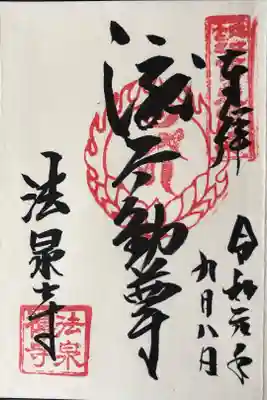 奉拝
令和元年
九月八日
不動尊
法泉寺
法泉
禅寺